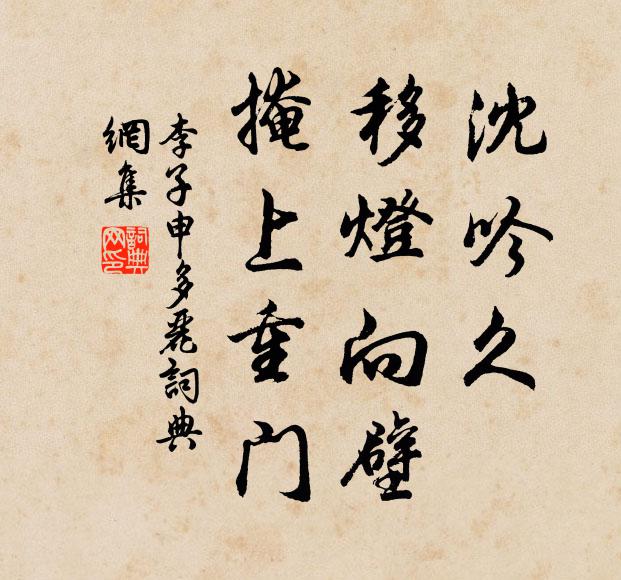 沈吟久
移燈向壁
掩上重門
李子申多麗詞典
網集
詞典網印